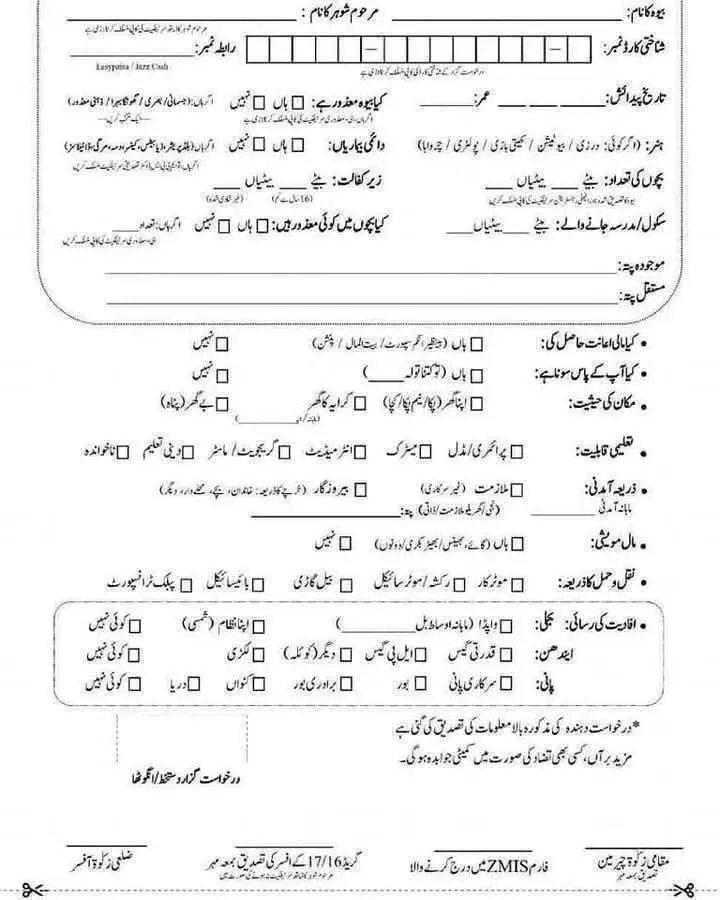 بیوہ کا نام: ____________ مرحوم شوہر کا نام : ____________
مرحوم شوہر کا نادرا سرٹیفکیٹ کی کاپی منسلک کرنا لازمی ہے
شناختی کارڈ نمبر: – – رابطہ نمبر: ____________
درخواست گزار کے شناختی کارڈ کی کاپی منسلک کرنا لازمی ہے Easypaisa / Jazz Cash
تاریخ پیدائش: ____ ____ ____ عمر: ____ کیا بیوہ معذور ہے: ہاں □ نہیں □ اگر ہاں: (جسمانی/ بصری / گونگا بہرا / ذہنی معذور)
ہنر: (اگر کوئی: درزی / بیوٹیشن / کھیتی باڑی / پولٹری / چرواہا) دائمی بیماریاں: ہاں □ نہیں □ اگر ہاں: (بلڈ پریشر، ذیابیطس، کینسر، دمہ، مرگی، ڈائیلائسز)
بچوں کی تعداد: بیٹے ____ بیٹیاں ____ زیر کفالت: بیٹے ____ بیٹیاں ____
(16 سال سے کم) (غیر شادی شدہ)
سکول/ مدرسہ جانے والے: بیٹے ____ بیٹیاں ____ کیا بچوں میں کوئی معذور ہیں: □ ہاں □ نہیں اگر ہاں: تعداد ____
موجودہ پتہ: ____________
مستقل پتہ: ____________
• کیا مالی اعانت حاصل کی: □ ہاں (بینظیر انکم سپورٹ/ بیت المال / پنشن) □ نہیں
• کیا آپ کے پاس سونا ہے: □ ہاں (تو کتنا تولہ ____) □ نہیں
• مکان کی حیثیت: □ اپنا گھر (پکا/ نیم پکا/ کچا) □ کرایہ کا گھر □ بے گھر (پناہ)
(ماہانہ کرایہ ____________)
• تعلیمی قابلیت: □ پرائمری/ مڈل □ میٹرک □ انٹرمیڈیٹ □ گریجویٹ/ ماسٹر □ دینی تعلیم □ ناخواندہ
• ذریعہ آمدنی: □ ملازمت (غیر سرکاری) □ بیروزگار (خرچے کا ذریعہ: خاندان، بچے، محلے دار، دیگر)
ماہانہ آمدنی ____________ (نجی/ گھریلو ملازمت/ ذاتی) پتہ: ____________
• مال مویشی: □ ہاں (گائے، بھینس/ بھیڑ بکری/ دونوں) □ نہیں
• نقل و حمل کا ذریعہ: □ موٹر کار □ رکشہ/ موٹر سائیکل □ بیل گاڑی □ بائیسائیکل □ پبلک ٹرانسپورٹ
• افادیت کی رسائی: بجلی: □ واپڈا (ماہانہ اوساط بل ____________) □ اپنا نظام (شمسی) □ کوئی نہیں
ایندھن: □ قدرتی گیس □ ایل پی گیس □ دیگر (کوئلہ) □ لکڑی □ کوئی نہیں
پانی: □ سرکاری پانی □ بور □ برادری بور □ کنواں □ دریا □ کوئی نہیں
*درخواست دہندہ کی مذکورہ بالا معلومات کی تصدیق کی گئی ہے
مزید برآں، کسی بھی تضاد کی صورت میں کمیٹی جوابدہ ہوگی۔
درخواست گزار دستخط/ انگوٹھا
مقامی زکوٰۃ چیرمین فارم ZMIS میں درج کرنے والا گریڈ 17/16 کے افسر کی تصدیق بمعہ مہر ضلعی زکوٰۃ آفسر
تصدیق بمعہ مہر